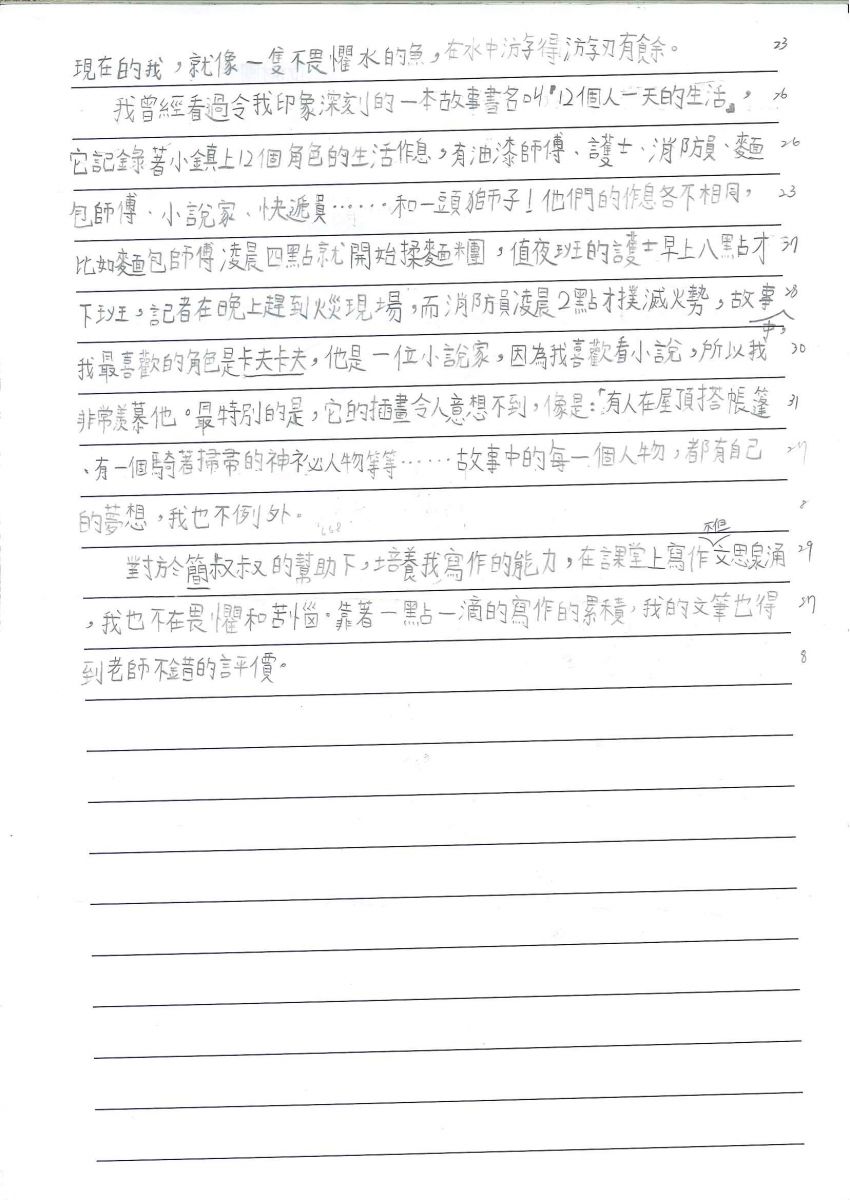 現在的我，就像一隻不畏懼水的魚，在水中游得游刃有餘。 23
我曾經看過令我印象深刻的一本故事書名叫『12個人一天的生活』， 26
它記錄著小鎮上12個角色的生活作息，有油漆師傅、護士、消防員、麵 26
包師傅、小說家、快遞員……和一頭獅子！他們的作息各不相同， 23
比如麵包師傅凌晨四點就開始揉麵糰，值夜班的護士早上八點才 31
下班，記者在晚上趕到火災現場，而消防員凌晨2點才撲滅火勢，故事 28
中，
我最喜歡的角色是卡夫卡夫，他是一位小說家，因為我喜歡看小說，所以我 30
非常羨慕他。最特別的是，它的插畫令人意想不到，像是：「有人在屋頂搭帳篷 31
、有一個騎著掃帚的神祕人物等等……故事中的每一個人物，都有自己 27
的夢想，我也不例外。 8
對於簡叔叔的幫助下，培養我寫作的能力，在課堂上寫作文思泉涌 29
，我也不在畏懼和苦惱。靠著一點一滴的寫作的累積，我的文筆也得 27
到老師不錯的評價。 8